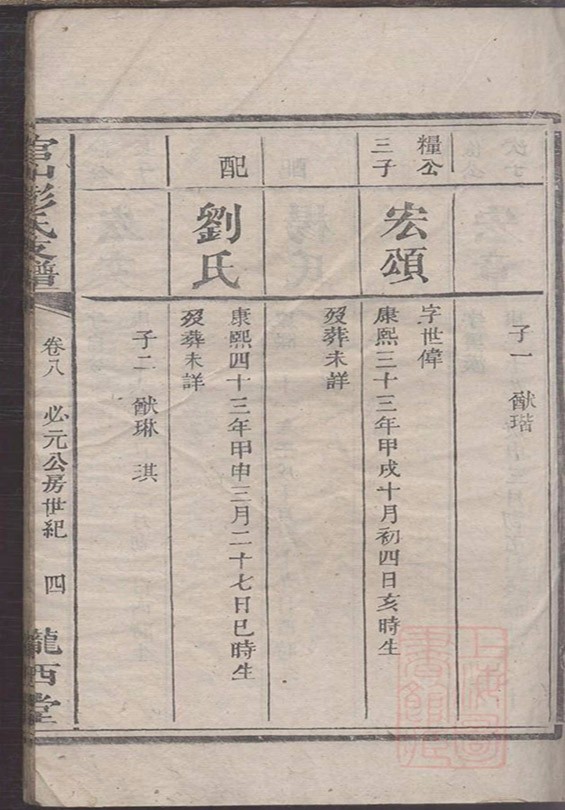 子一 猷瑎
糧公
三子
宏頌
字世偉
康熙三十三年甲戌十月初四日亥時生
歿葬未詳
配
劉氏
康熙四十三年甲申三月二十七日巳時生
歿葬未詳
子二 猷琳 淇
官山彭氏支譜
卷八 必元公房世紀 四
隴西堂
上海圖書館藏